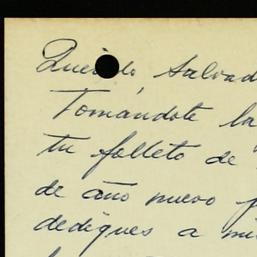 Querido Salvad
Tomándote la
tu folleto de
de año nuevo p
dediques a mi